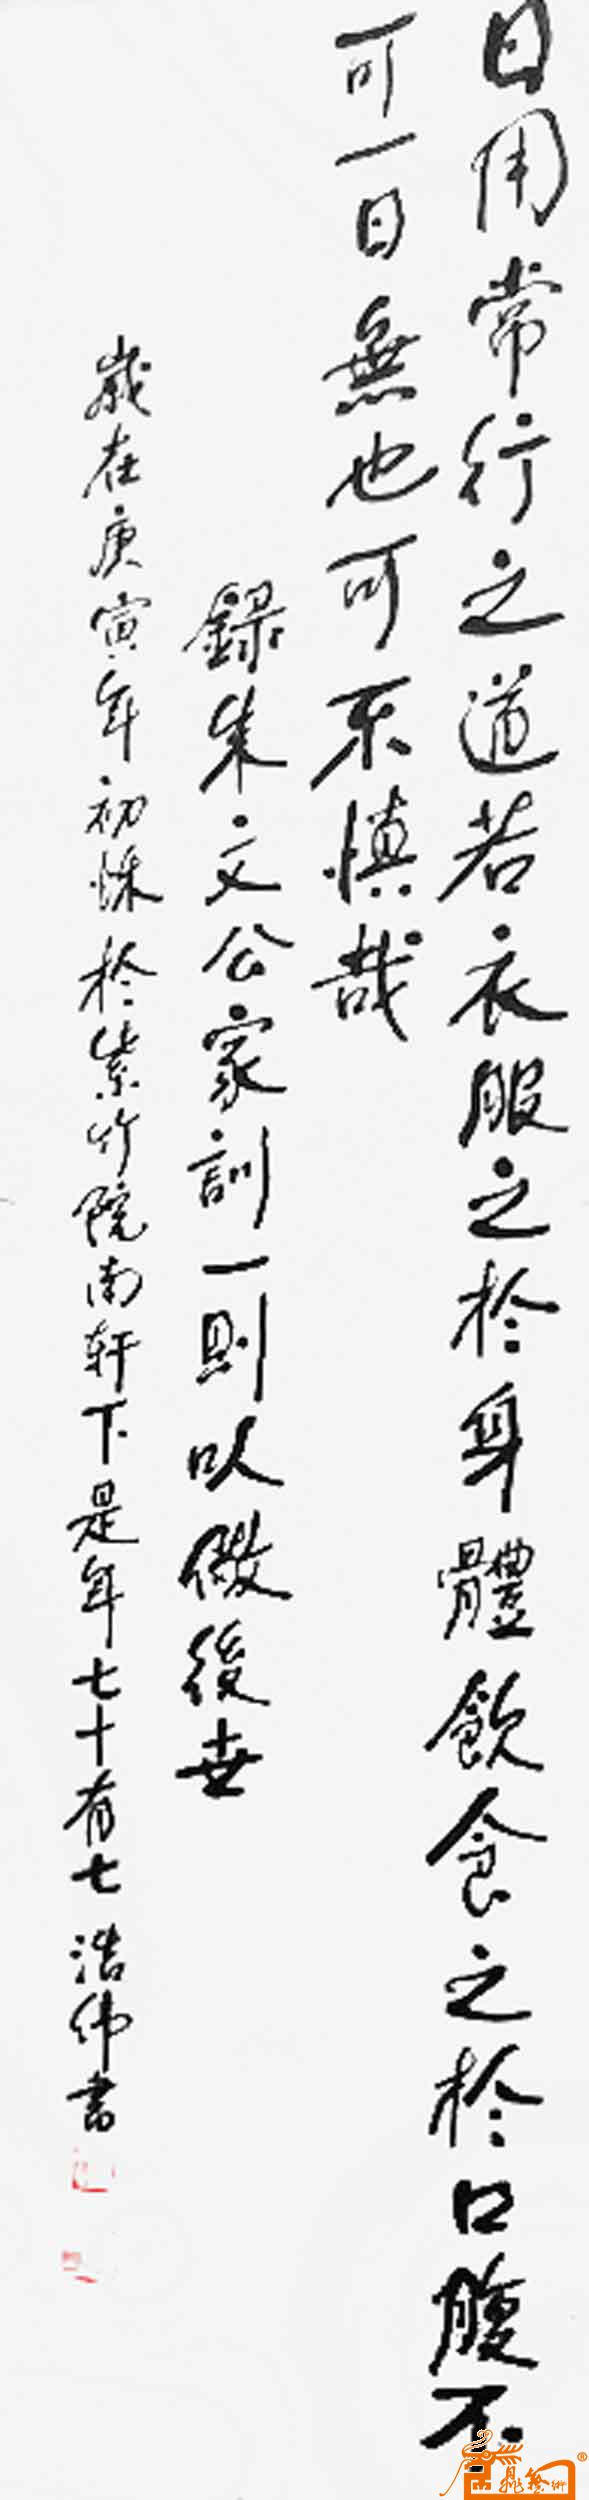 日用常行之道若衣服之於身體飲食之於口腹不
可一日無也可不慎哉
錄朱文公家訓一則以儆後世
歲在庚寅年初秌於紫竹院南轩下是年七十有七浩伟書